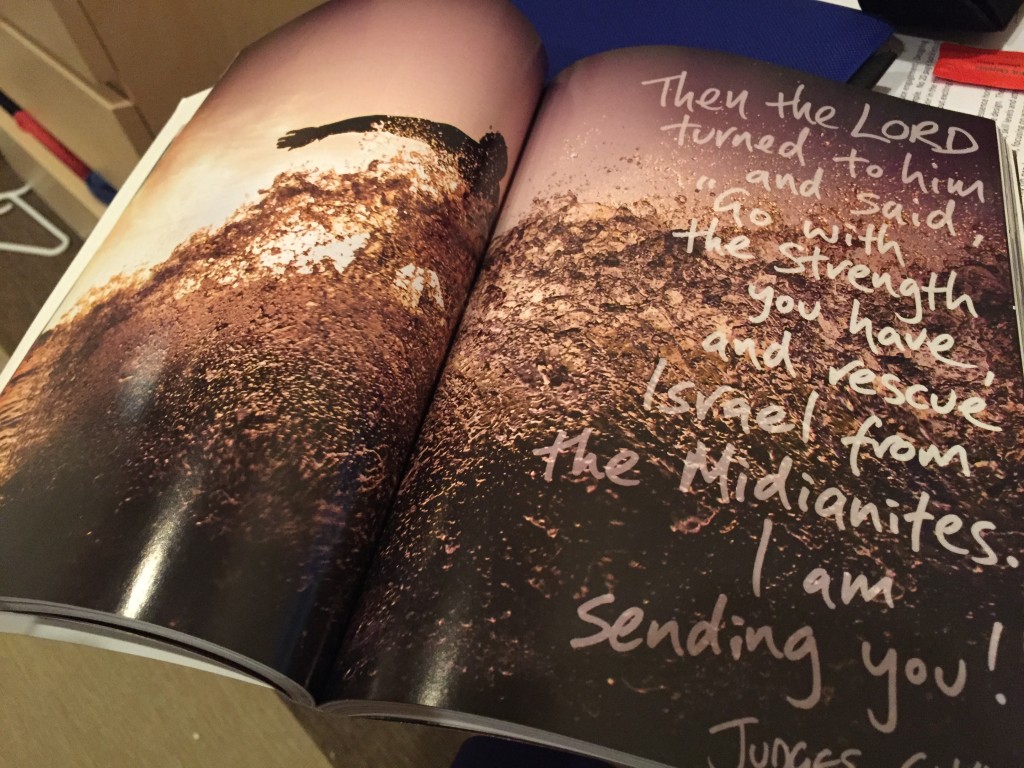 Then the LORD
turned to him
and said,
"Go with
the strength
you have,
and rescue
Israel from
the Midianites.
I am
sending you!
JUDGES